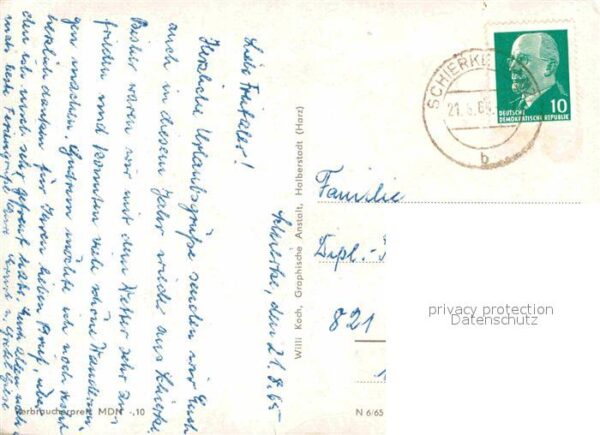 Schierke, den 21.8.65
Liebe Fritzler!
Herzliche Urlaubsgrüße senden wir Euch
auch in diesem Jahr wieder aus Schierke.
Bisher waren wir mit dem Wetter sehr zu-
frieden und konnten viele schöne Wanderun-
gen machen. Gestern möchte ich noch recht
herzlich danken für Ihren lieben Brief, über
den ich mich sehr gefreut habe. Euch allen noch
recht beste Feriengrüße
Verbraucherpreis MDN -,10
Willi Koch, Graphische Anstalt, Halberstadt (Harz)
N 6/65
SCHIERKE
21.8.65
b
DEUTSCHE
DEMOKRATISCHE REPUBLIK
10
Familie
Dipl.-
821
privacy protection
Datenschutz